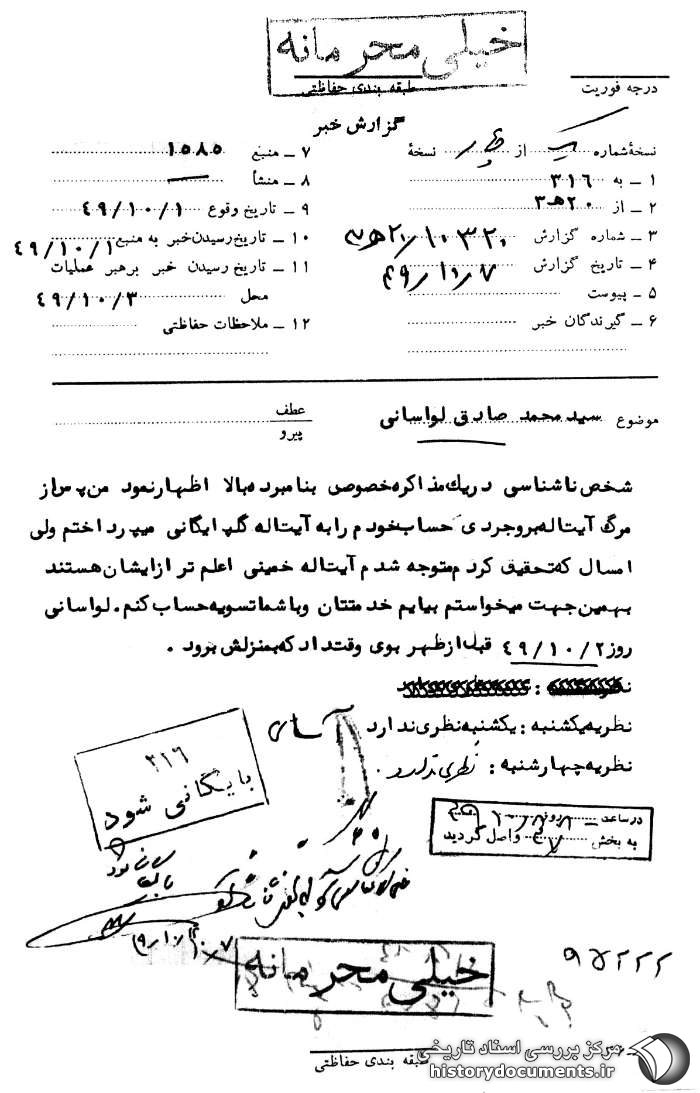 خیلی محرمانه
طبقه بندی حفاظتی
درجه فوریت
گزارش خبر
نسخهٔ شماره یک از چهار نسخهٔ
۱ ـ به ۳۱۶
۲ ـ از ۲۰ هـ ۳
۳ ـ شماره گزارش ۱۰۳۲۰/۲۰ هـ ۳
۴ ـ تاریخ گزارش ۴۹/۱۰/۷
۵ ـ پیوست
۶ ـ گیرندگان خبر
۷ ـ منبع ۱۵۸۵
۸ ـ منشأ
۹ ـ تاریخ وقوع ۴۹/۱۰/۱
۱۰ ـ تاریخ رسیدن خبر به منبع ۴۹/۱۰/۱
۱۱ ـ تاریخ رسیدن خبر برهبر عملیات
محل ۴۹/۱۰/۳
۱۲ ـ ملاحظات حفاظتی
موضوع سید محمد صادق لواسانی
عطف
پیرو
شخص ناشناسی در یک مذاکره خصوصی بنامبرده بالا اظهار نمود من پس از
مرگ آیت اله بروجردی حساب خودم را به آیت اله گلپایگانی میپرداختم ولی
امسال که تحقیق کردم متوجه شدم آیت اله خمینی اعلم تر از ایشان هستند
بهمین جهت میخواستم بیایم خدمتتان و باشما تسویه حساب کنم. لواسانی
روز ۴۹/۱۰/۲ قبل از ظهر بوی وقت داد که بمنزلش برود .
نظریه یکشنبه : یکشنبه نظری ندارد
نظریه چهارشنبه : نظری ندارد .
۳۱۶
بایگانی شود
در ساعت روز
به بخش واصل گردید
خیلی محرمانه
۹۵۲۲۲
طبقه بندی حفاظتی
مرکز بررسی اسناد تاریخی
historydocuments.ir